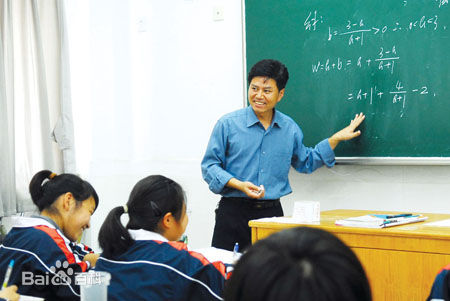 解:
b = \frac{3-a}{a+1} > 0 ∴ 0<a<3,
w = a+b = a + \frac{3-a}{a+1}
= a+1 + \frac{4}{a+1} - 2.
Bai百科